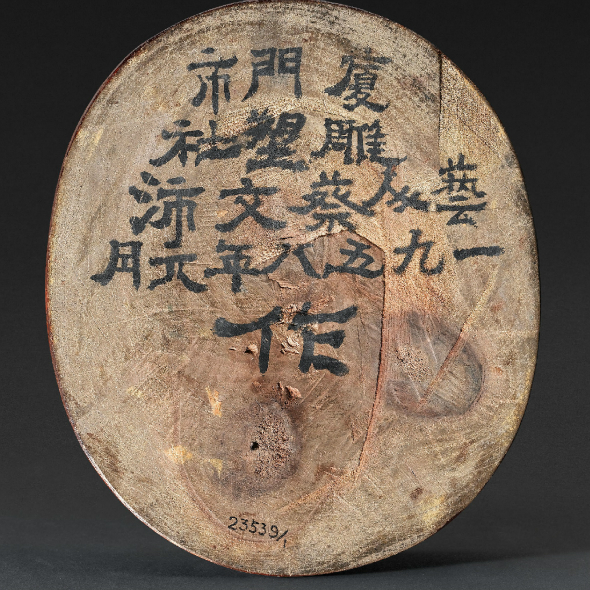 廈門市
雕塑社
藝人蔡文沛
一九五八年元月
作
23539/1